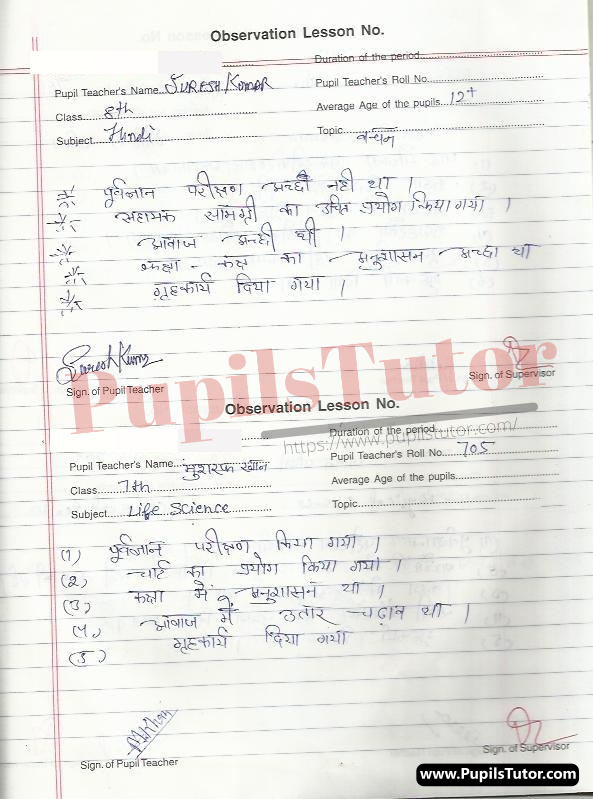 Observation Lesson No.
Duration of the period
Pupil Teacher's Name SURESH Kumar
Pupil Teacher's Roll No
Class 8th
Average Age of the pupils 12+
Subject Hindi
Topic वचन
पूर्वज्ञान परीक्षण अच्छी नही था ।
सहायक सामग्री का उचित प्रयोग किया गया ।
आवाज अच्छी थी ।
कक्षा - कक्ष का अनुशासन अच्छा था
गृहकार्य दिया गया ।
Suresh Kumar
Sign. of Pupil Teacher
Sign. of Supervisor
PupilsTutor
Observation Lesson No.
https://www.pupilstutor.com/
Duration of the period
Pupil Teacher's Name मुशरफ खान
Pupil Teacher's Roll No 705
Class 7th
Average Age of the pupils
Subject Life Science
Topic
(1) पूर्वज्ञान परीक्षण किया गया ।
(2) चार्ट का प्रयोग किया गया ।
(3) कक्षा में अनुशासन था ।
(4) आवाज में उतार - चढ़ाव था ।
(5) गृहकार्य दिया गया
MKhan
Sign. of Pupil Teacher
Sign. of Supervisor
www.PupilsTutor.com